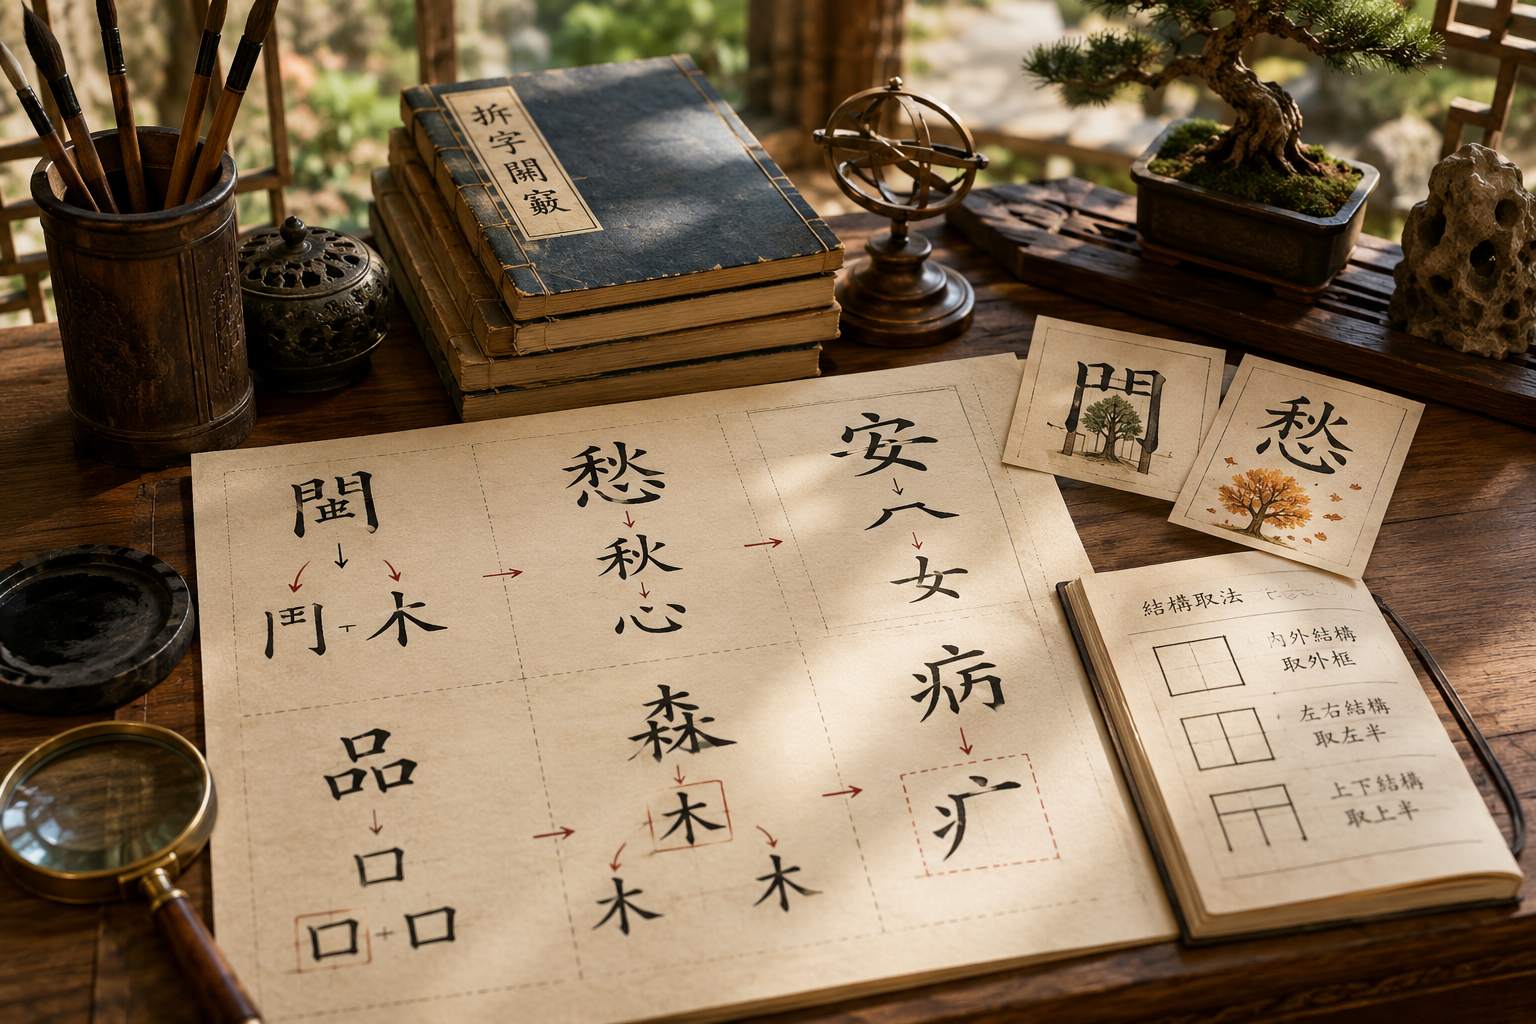 拆字
愁
秋
心
安
女
木
品
口
口 + 口
森
木
木 木
病
疒
門
愁
結構取法
內外結構
取外框
左右結構
取左半
上下結構
取上半